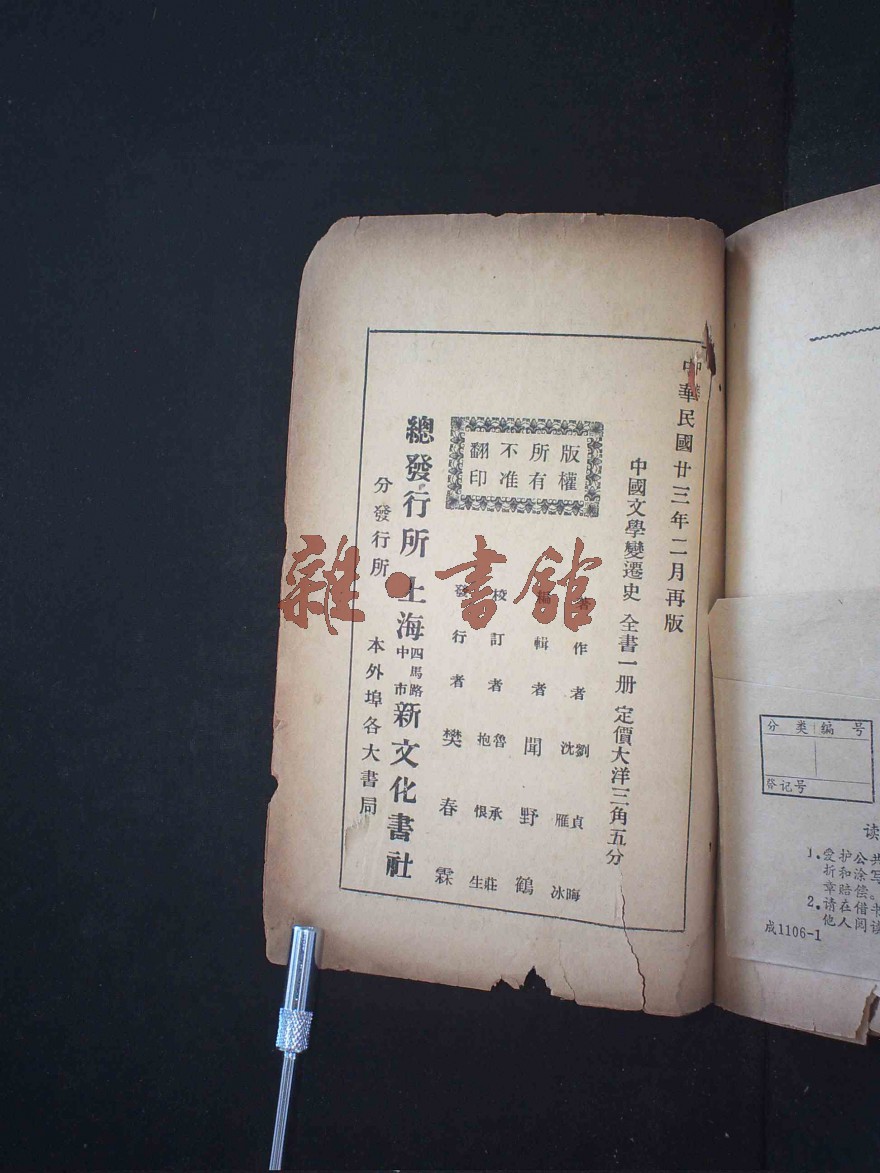 中華民國廿三年二月再版
中國文學變遷史 全書一册 定價大洋三角五分
版權
所有
不准
翻印
著作者 劉貞晦 沈雁冰
編輯者 聞野鶴
校訂者 魯承莊 抱恨生
發行者 樊春霖
總發行所 上海四馬路中市新文化書社
分發行所 本外埠各大書局
雜·書館
分类编号
登记号
读
1.爱护公共
折和涂写
章赔偿。
2.请在借书
他人阅读
成1106-1